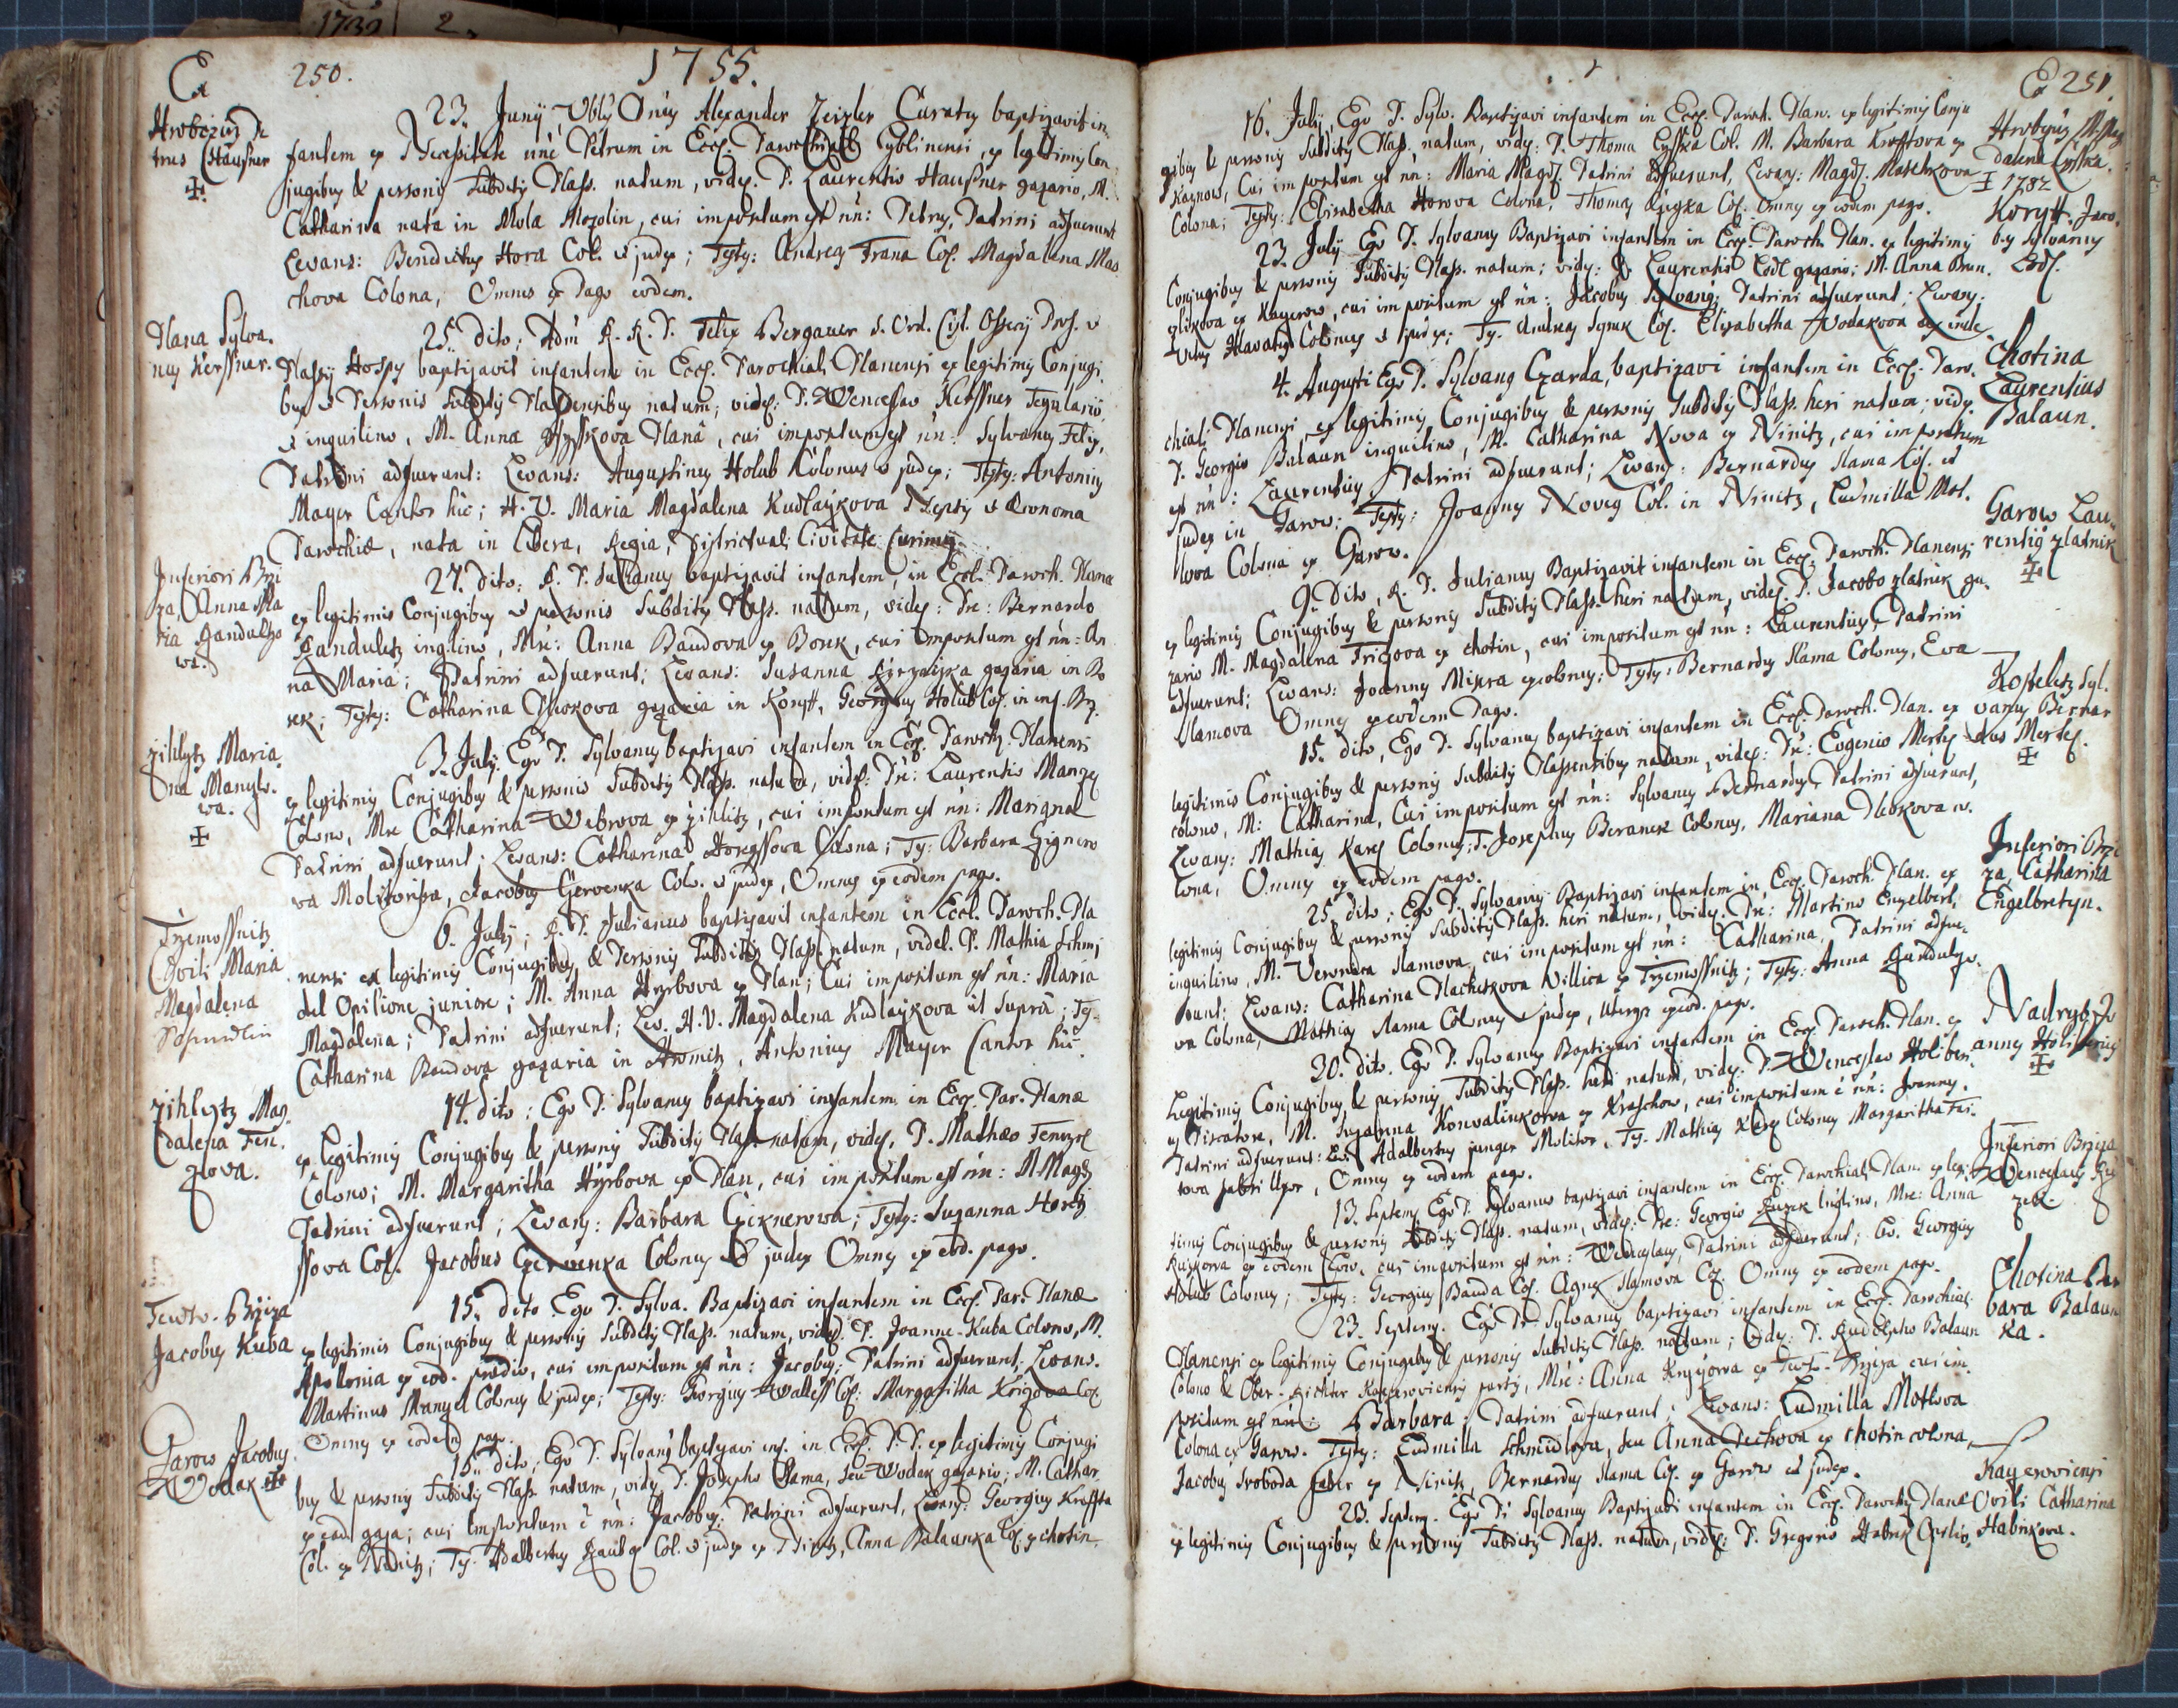 1732 2
250.
1755.
Hrobczicz Pe
trus Hausner
23. Junij Vblis Dnus Alexander Zeisler Curatus baptizavit in
fantem ex Necessitate nne Petrum in Eccl. Parochiali Cyblinensi, ex legitimis Con
jugibus & personis Subditis Plass. natum, videl. P. Laurentio Hausner gazario, M.
Catharina nata in Mola Mozolin, cui impositum est nn: Petrus, Patrini adfuerunt
Levans: Benedictus Hora Col. et judex; Testes: Andreas Frana Col. Magdalena Mas
chova Colona, Omnes ex Pago eodem.
Plana Sylva.
nus Kerssner.
25. dito; Adm R. R. P. Felix Bergauer S. Ord. Cist. Ossecij Prof. et
Plassij Hospes baptizavit infantem in Eccl. Parochiali Planensi ex legitimis Conjugi
bus et Personis Subditis Plassensibus natum; videl: P. Wenceslao Kerssner Tegulario
et inquilino, M. Anna Plana, cui impositum est nn: Sylvanus Felix,
Patrini adfuerunt: Levans: Augustinus Holub Colonus et judex; Testes: Antonius
Mayer Cantor hic; H. V. Maria Magdalena Kudlaykova Neptis et Oeconoma
Parochiæ, nata in Libera, Regia, Districtuali Civitate Curimis
Inferiori Brzi
za, Anna Ma
ria Randulzo
wa.
27. dito: R. P. Julianus baptizavit infantem, in Eccl. Paroch. Planæ
ex legitimis Conjugibus et personis Subditis Plass. natum, videl: Pre: Bernardo
Randuletz inqlino, Mre: Anna Baudova ex Borek, cui impositum est nn: An
na Maria; Patrini adfuerunt; Levans: Susanna gazaria in Bo
rek; Testes: Catharina gazaria in Koryt, Georgius Holub Col. in inf. Brz.
Zihlytz Maria
na Manyho.
wa.
3. July. Ego P. Sylvanus baptizavi infantem in Eccl. Paroch. Planensi
ex legitimis Conjugibus & personis Subditis Plass. natum, videl: Pre: Laurentio Manzel
Colono, Mre Catharina Webrova ex Zihlitz, cui impositum est nn: Mariana
Patrini adfuerunt; Levans: Catharina Horessova Colona; Ty: Barbara Zignero
va Molitorissa, Jacobus Czervenka Colo. et judex, Omnes ex eodem pago.
Trzemossnitz
Ovili Maria
Magdalena
Schmidlin
6. July; R. P. Julianus baptizavit infantem in Eccl. Paroch. Pla
nensi ex legitimis Conjugibus & Personis Subditis Plass. natum, videl. P. Mathia Schmi
del Opilione juniore; M. Anna Hyrbova ex Plan; Cui impositum est nn: Maria
Magdalena; Patrini adfuerunt; Lev. H. V. Magdalena Kudlaykova ut supra; Ty.
Catharina Baudova gazaria in Hromitz, Antonius Mayer Cantor hic.
Zihlytz Mag
dalena Fen.
zlova.
14. dito; Ego P. Sylvanus baptizavi infantem in Eccl. Par. Planæ
ex legitimis Conjugibus & personis Subditis Plass. natum, videl. P. Mathæo Fenzyl
Colono; M. Margaritha Hyrbova ex Plan, cui impositum est nn: M. Magd.
Patrini adfuerunt; Levans: Barbara Czicknerowa; Testes: Suzanna Horeh
ssova Col. Jacobus Czervenka Colonus et judex Omnes ex eod. pago.
Teuto. Brziza
Jacobus Kuba
15. dito Ego P. Sylva. Baptizavi infantem in Eccl. Par. Planæ
ex legitimis Conjugibus & personis Subditis Plass. natum, videl. P. Joanne Kuba Colono, M.
Apollonia ex eod. prædio, cui impositum est nn: Jacobus; Patrini adfuerunt; Levans.
Martinus Manzel Colonus & judex; Testes: Georgius Waltess Col: Margaritha Krizova Col.
Omnes ex eodem pago.
Garow Jacobus
Wodak
15. dito; Ego P. Sylvanus baptizavi inf. in Eccl. P. P. ex legitimis Conjugi
bus & personis Subditis Plass. natum, videl. P. Josepho Slama, seu Wodak gazario; M. Cathar.
ex ead. gaza; cui impositum e nn: Jacobus: Patrini adfuerunt, Levans: Georgius Kraffta
Col. ex Ninitz; Ty. Adalbertus Raub Col. et judex ex Ninitz, Anna Balaunka Col. ex chotin.
251.
16. July, Ego P. Sylv. Baptizavi infantem in Eccl. Paroch. Plan. ex legitimis Conju
gibus & personis Subditis Plass. natum, videl: P. Thoma Lysska Col. M. Barbara Krofftova ex
Kaznow, Cui impositum est nn: Maria Magd. Patrini adfuerunt, Levans: Magd. Maschkova
Colona; Testes: Elisabetha Horova Colona, Thomas Col. Omnes ex eodem pago.
Hrobczicz M. Mag
dalena Lysska.
1782
23. July Ego P. Sylvanus Baptizavi infantem in Eccl. Paroch. Plan. ex legitimis
Conjugibus & personis Subditis Plass. natum; videl: P. Laurentio Lodl gazario; M. Anna Brun.
zlikova ex Kayerow, cui impositum est nn: Jacobus Sylvanus; Patrini adfuerunt; Levans:
Vitus Hlavatz Colonus et Judex; Ty. Andreas Synek Col. Elizabetha Wodakova
Korytt. Jaco.
bus Sylvanus
Lodl.
4. Augusti Ego P. Sylvanus Czarda, baptizavi infantem in Eccl. Paro.
chiali Planensi, ex legitimis Conjugibus & personis Subditis Plass. heri natum; videl.
P. Georgio Balaun inquilino, M. Catharina Nova ex Ninitz, cui impositum
est nn: Laurentius, Patrini adfuerunt; Levans: Bernardus Slama Col. et
judex in Garow; Testes: Joannes Noveg Col. in Ninitz, Ludmilla Mot.
lova Colona ex Garow.
Chotina
Laurentius
Balaun.
9. Dito, R. P. Julianus Baptizavit infantem in Eccl. Paroch. Planensi
ex legitimis Conjugibus & personis Subditis Plass. heri natum, videl. P. Jacobo Zlatnik ga.
zario M. Magdalena Frizova ex chotin, cui impositum est nn: Laurentius, Patrini
adfuerunt; Levans: Joannes Misra excolonus; Testes: Bernardus Slama Colonus, Eva
Slamova Omnes ex eodem Pago.
Garow Lau.
rentius Zlatnik
15. dito, Ego P. Sylvanus baptizavi infantem in Eccl. Paroch. Plan. ex
legitimis Conjugibus & personis Subditis Plassensibus natum, videl: Pre: Eugenio Mertl
colono, M: Catharina, Cui impositum est nn: Sylvanus Bernardus, Patrini adfuerunt,
Levans: Mathias Karel Colonus; T. Josephus Beranek Colonus, Mariana Co.
lona, Omnes ex eodem pago.
Kostelitz Syl.
vanus Bernar
dus Mertl.
25. dito; Ego P. Sylvanus Baptizavi infantem in Eccl. Paroch. Plan. ex
legitimis Conjugibus & personis Subditis Plass. heri natum, videl. Pre: Martino Engelbert,
inquilino, M. Veronica Slamova, cui impositum est nn: Catharina, Patrini adfue.
runt; Levans: Catharina Plachetkova Villica ex Trzemossnitz; Testes: Anna Randulzo
va Colona, Mathias Slama Colonus et judex, uterque ex eod. pago.
Inferiori Brzi
za, Catharina
Engelbretyn.
30. dito. Ego P. Sylvanus Baptizavi infantem in Eccl. Paroch. Plan. ex
Legitimis Conjugibus & personis Subditis Plass. heri natum, videl: P. Wenceslao Holiber
Piscatore, M. Suzanna Konvalinkova ex Kraschow, cui impositum e nn: Joannes.
Patrini adfuerunt: Lev. Adalbertus junger Molitor, Ty. Mathias Karel Colonus Margaritha
tova fabri Uxor, Omnes ex eodem pago.
Nadryb Jo
annes Holiberus
13. Septem. Ego P. Sylvanus baptizavi infantem in Eccl. Parochiali Plan. ex legi.
timis Conjugibus & personis Subditis Plass. natum, videl: Pre: Georgio Ruzek Inqlino, Mre: Anna
ex eodem Pago, cui impositum est nn: Wenceslaus, Patrini adfuerunt; Lev. Georgius
Holub Colonus; Testes: Georgius Bauda Col. Agnes Slamova Col. Omnes ex eodem pago.
Inferiori Brziza
Wenceslaus Ru
zek.
23. Septem. Ego P. Sylvanus baptizavi infantem in Eccl. Parochiali
Planensi ex legitimis Conjugibus & personis Subditis Plass. natum; videl: P. Rudolpho Balaun
Colono & Ober-Richter Kacerovicensis partis, Mre: Anna ex Teut. Brziza cui im.
positum est nn: Barbara. Patrini adfuerunt; Levans: Ludmilla Motlova
Colona ex Garow. Testes: Ludmilla Schmidlova, seu Anna Pechova ex chotin colona,
Jacobus Svoboda faber ex Ninitz, Bernardus Slama Col. ex Garow et judex.
Chotina Bar
bara Balaun
ka.
28. Septem. Ego P. Sylvanus Baptizavi infantem in Eccl. Paroch. Planæ
ex legitimis Conjugibus & personis Subditis Plass. natum, videl: P. Gregorio Habrik Opilio.
Kayerovicensi
Ovili Catharina
Habrikova.